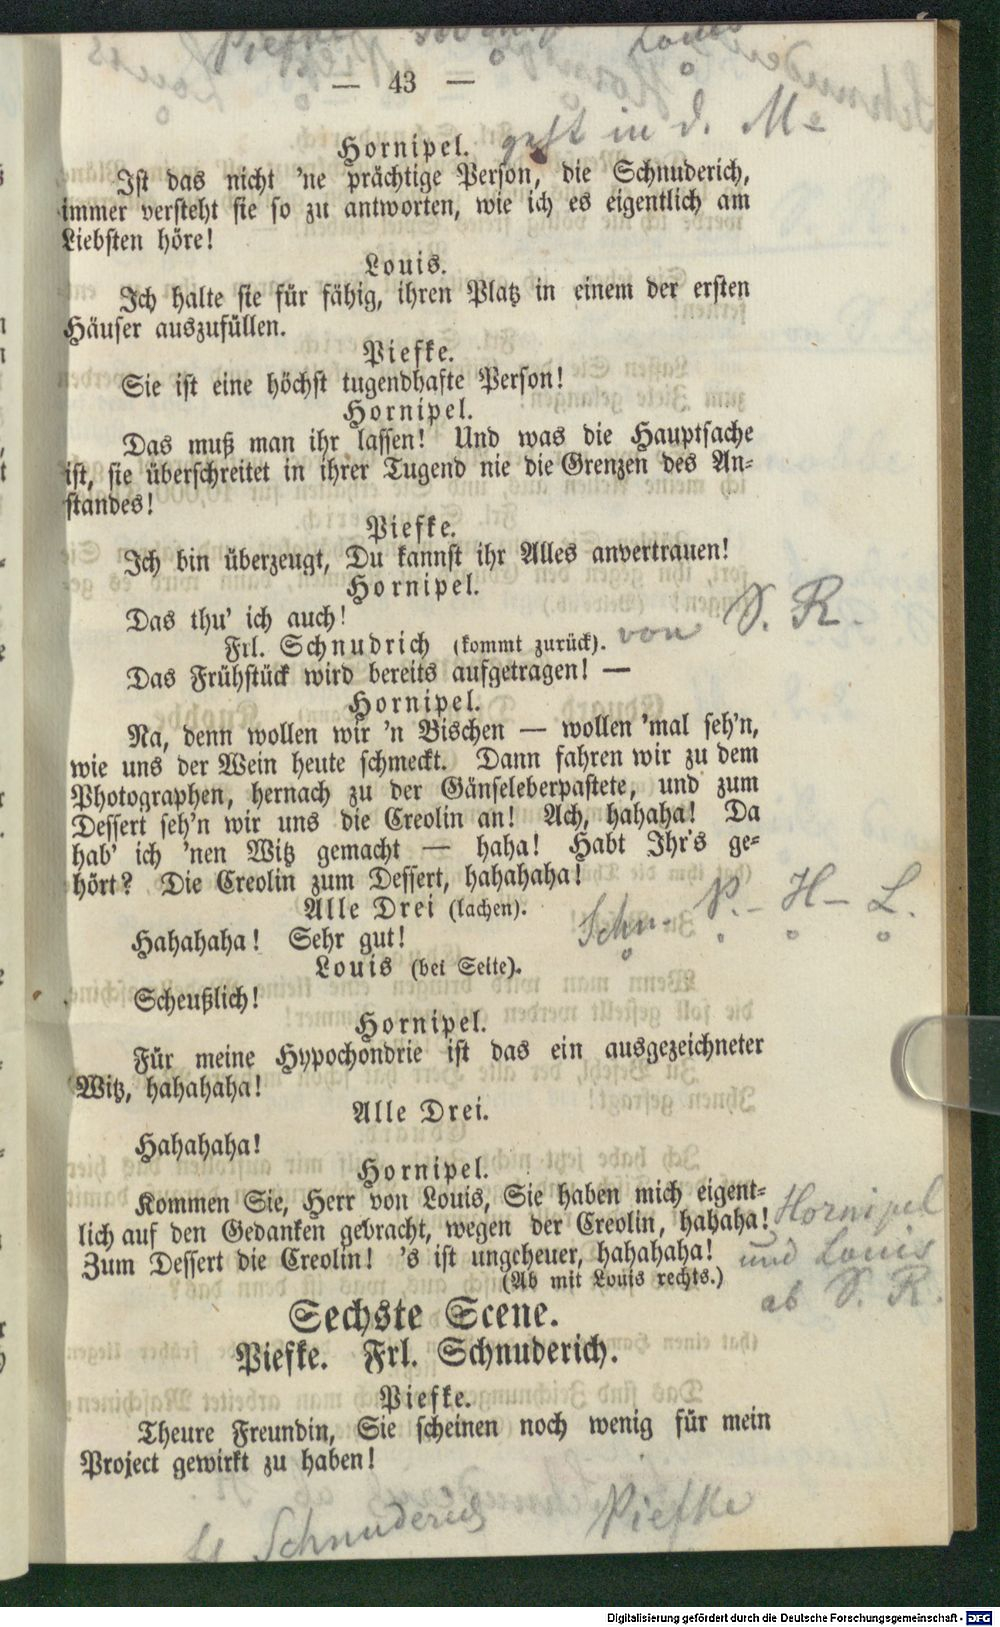 Piefke Louis
— 43 —
Hornipel. geht in d. M
Ist das nicht 'ne prächtige Person, die Schnuderich,
immer versteht sie so zu antworten, wie ich es eigentlich am
Liebsten höre!
Louis.
Ich halte sie für fähig, ihren Platz in einem der ersten
Häuser auszufüllen.
Piefke.
Sie ist eine höchst tugendhafte Person!
Hornipel.
Das muß man ihr lassen! Und was die Hauptsache
ist, sie überschreitet in ihrer Tugend nie die Grenzen des An-
standes!
Piefke.
Ich bin überzeugt, Du kannst ihr Alles anvertrauen!
Hornipel.
Das thu' ich auch!
Frl. Schnudrich (kommt zurück). von S. R.
Das Frühstück wird bereits aufgetragen! —
Hornipel.
Na, denn wollen wir 'n Bischen — wollen 'mal seh'n,
wie uns der Wein heute schmeckt. Dann fahren wir zu dem
Photographen, hernach zu der Gänseleberpastete, und zum
Dessert seh'n wir uns die Creolin an! Ach, hahaha! Da
hab' ich 'nen Witz gemacht — haha! Habt Ihr's ge-
hört? Die Creolin zum Dessert, hahahaha!
Alle Drei (lachen). Schn- P.- H- L.
Hahahaha! Sehr gut!
Louis (bei Seite).
Scheußlich!
Hornipel.
Für meine Hypochondrie ist das ein ausgezeichneter
Witz, hahahaha!
Alle Drei.
Hahahaha!
Hornipel.
Kommen Sie, Herr von Louis, Sie haben mich eigent-
lich auf den Gedanken gebracht, wegen der Creolin, hahaha!
Zum Dessert die Creolin! 's ist ungeheuer, hahahaha!
(Ab mit Louis rechts.)
Hornipel
und Louis
ab S. R.
Sechste Scene.
Piefke. Frl. Schnuderich.
Piefke.
Theure Freundin, Sie scheinen noch wenig für mein
Project gewirkt zu haben!
Schnuderich Piefke
Digitalisierung gefördert durch die Deutsche Forschungsgemeinschaft - DFG